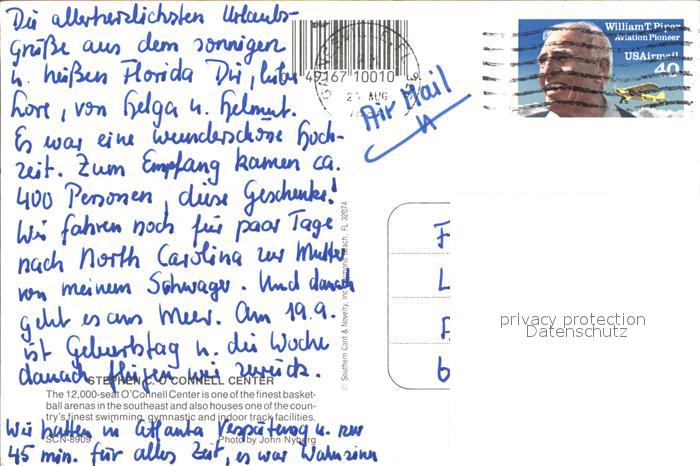 Die allerherzlichsten Urlaubs-
grüße aus dem sonnigen
u. heißen Florida Dir, liebe
Lore, von Helga u. Helmut.
Es war eine wunderschöne Hoch-
zeit. Zum Empfang kamen ca.
400 Personen, diese Geschenke!
Wir fahren noch für paar Tage
nach North Carolina zur Mutter
von meinem Schwager. Und danach
geht es ans Meer. Am 19.9.
ist Geburtstag u. die Woche
danach fliegen wir zurück.
STEPHEN C. O'CONNELL CENTER
The 12,000-seat O'Connell Center is one of the finest basket-
ball arenas in the southeast and also houses one of the coun-
try's finest swimming, gymnastic and indoor track facilities.
SCN-8909 Photo by John Nyberg
Wir hatten in Atlanta Verspätung u. nur
45 min. für alles Zeit, es war Wahnsinn
49167 10010
AUG
Air Mail
William T. Piper
Aviation Pioneer
USAirmail
40
© Southern Card & Novelty, Inc., Ormond Beach, FL 32074
F
L
A
6
privacy protection
Datenschutz